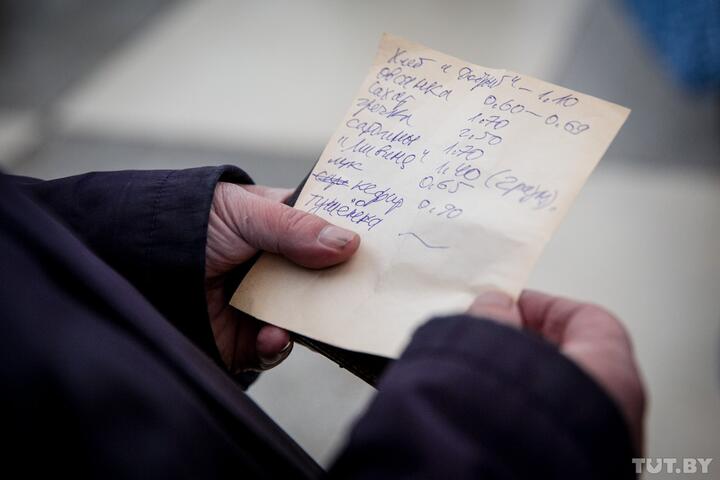 Хлеб "Водар" – 1.10
овсянка 0.60 – 0.69
сахар 1.70
гречка 2.50
сардины 1.70
1.40 (груди).
лук 0.65
кефир 0.90
тушёнка ~
TUT.BY